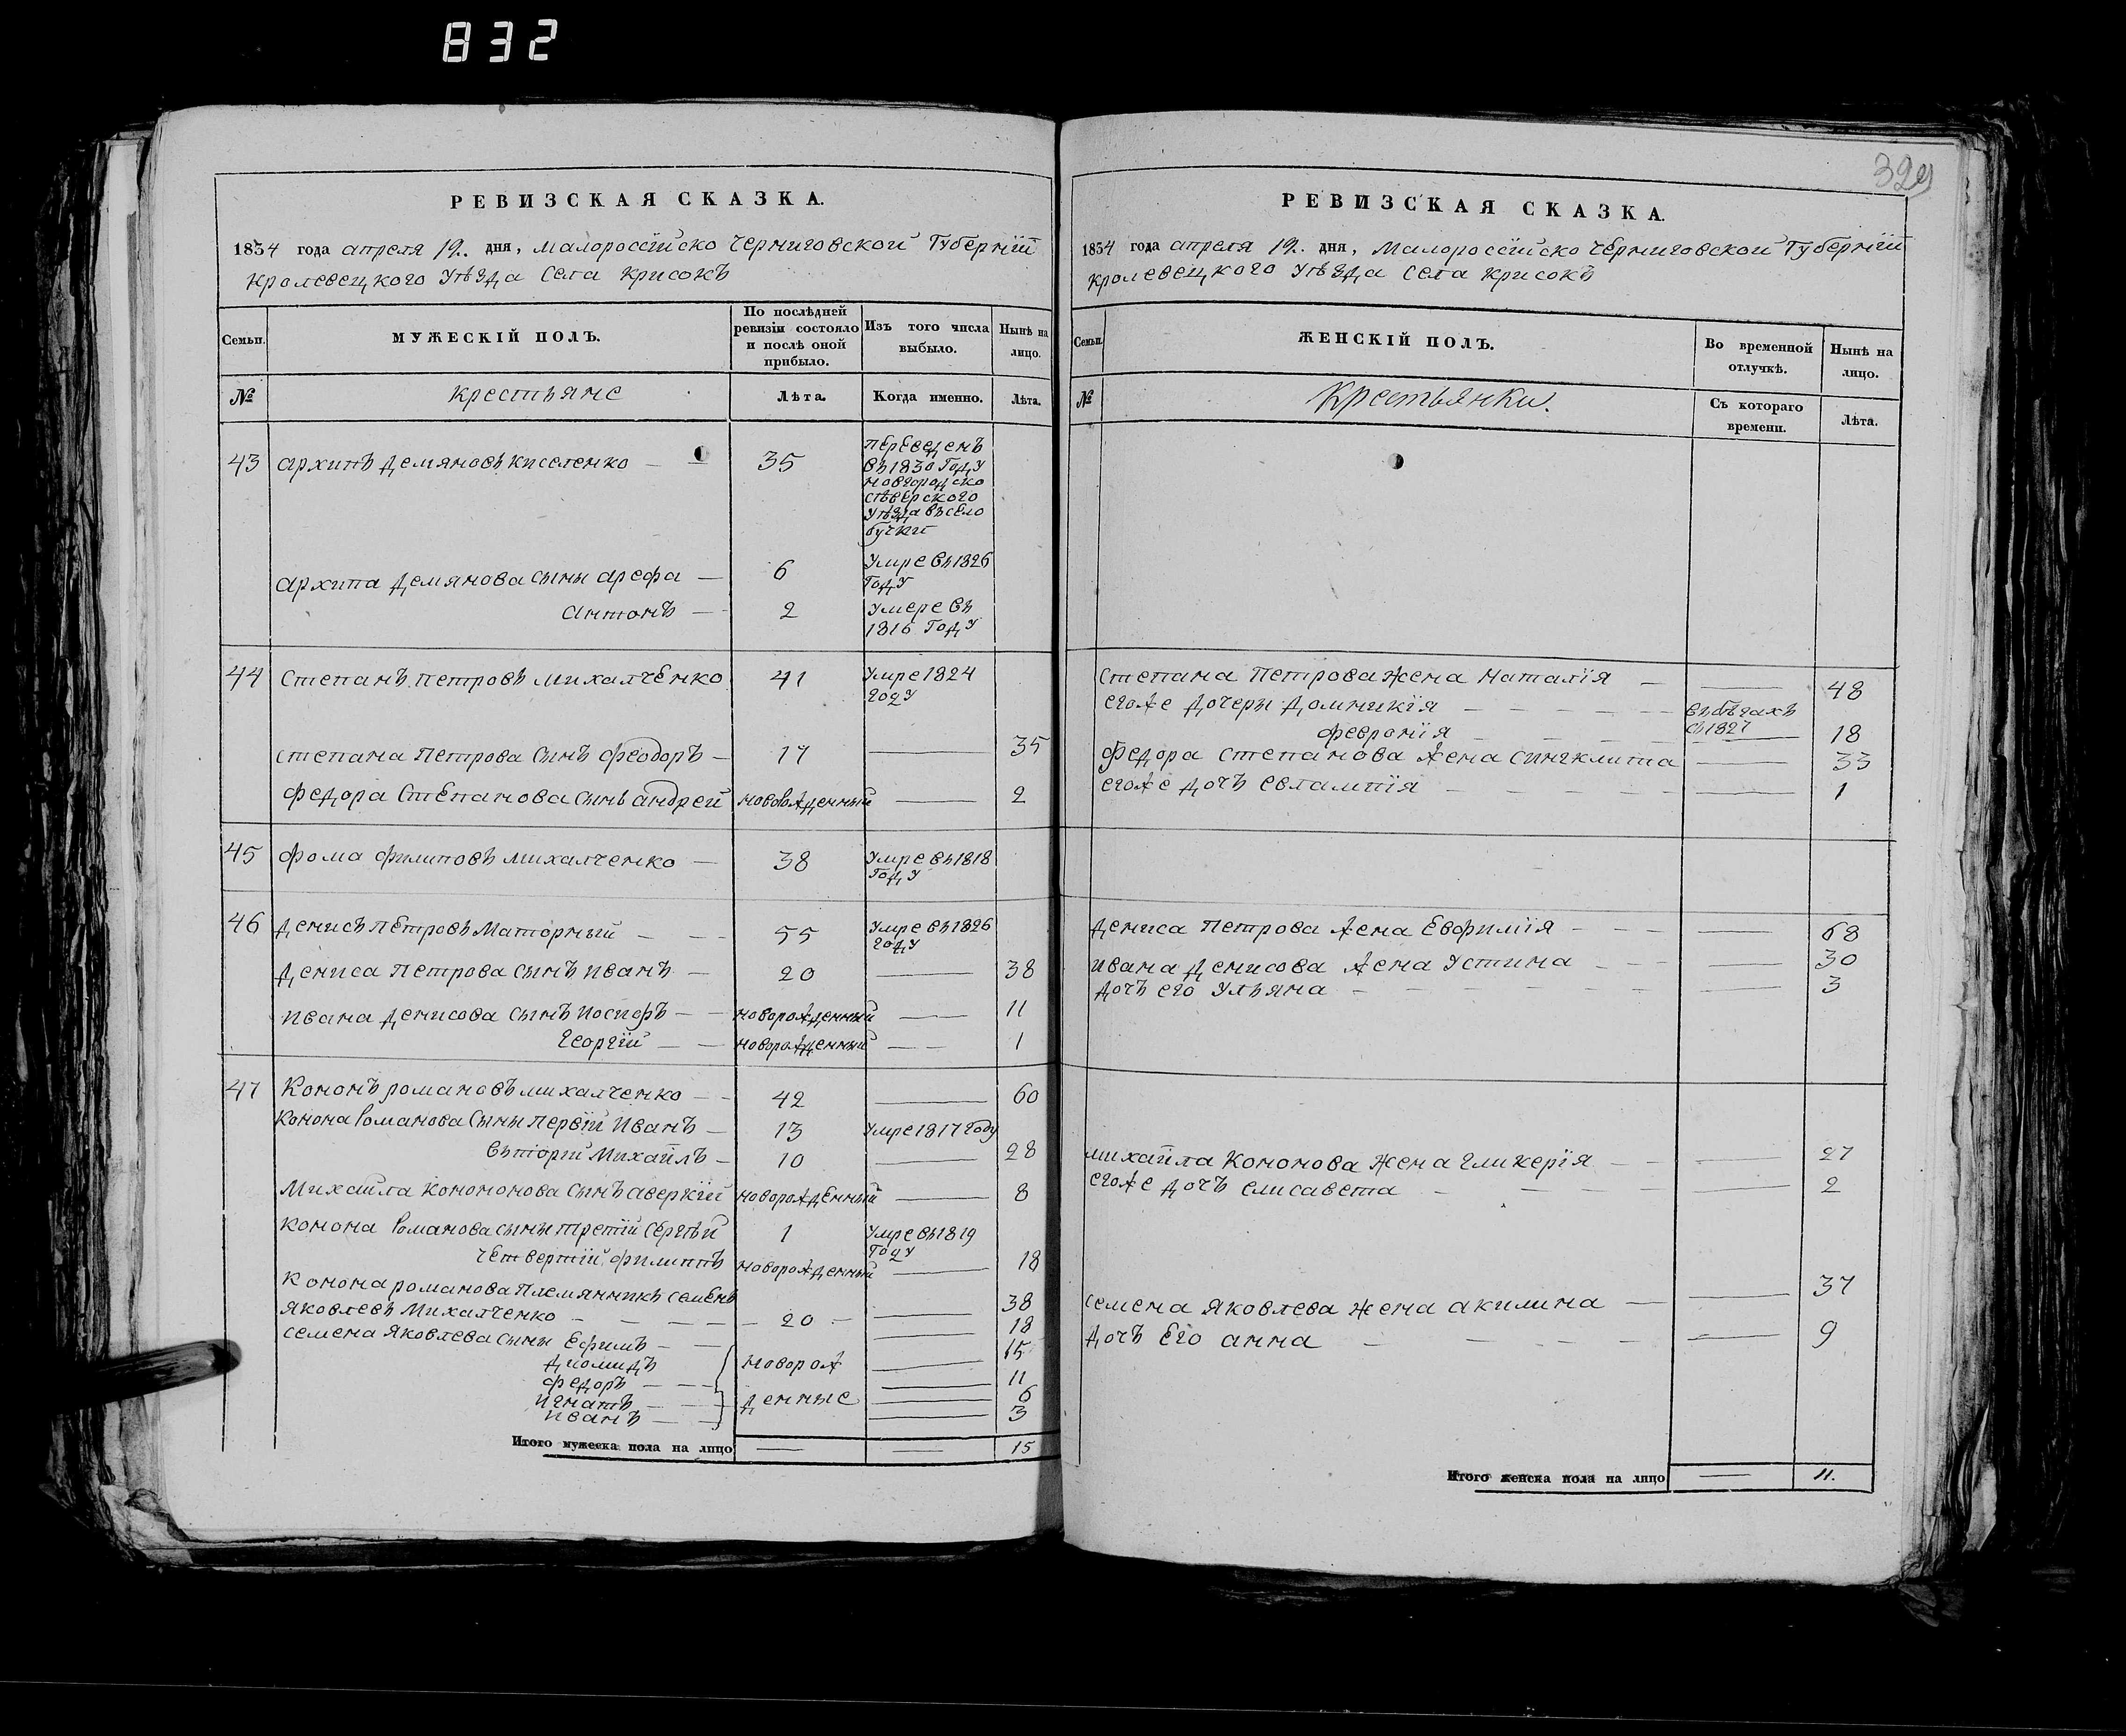 832
РЕВИЗСКАЯ СКАЗКА.
1834 года апреля 19. дня, Малоросїйско Черниговской Губернїй
Кролевецкого Уѣзда Села Крисокъ
Семьи.
МУЖЕСКІЙ ПОЛЪ.
По послѣдней ревизіи состояло и послѣ оной прибыло.
Изъ того числа выбыло.
Нынѣ на лицо.
№
крестьяне
Лѣта.
Когда именно.
Лѣта.
43 архипъ Демяновъ Киселенко — 35
переведенъ
въ 1830 Году
новгородско
сѣверского
Уѣзда въ село
бучки
архипа Демянова сыны арефа — 6 Умре въ 1826
Году
антонъ — 2 Умере въ
1816 Году
44 Степанъ Петровъ Михалченко 41 Умре 1824
году
степана Петрова Сынъ феодоръ — 17 — 35
Федора Степанова Сынъ андрей новорожденный — 2
45 фома филиповъ михалченко — 38 Умре въ 1818
Году
46 Денисъ Петровъ Маторный — 55 Умре въ 1826
году
Дениса Петрова сынъ иванъ — 20 — 38
ивана Денисова сынъ иосифъ — новорожденный — 11
Георгїй — новорожденный — 1
47 Кононъ романовъ михалченко — 42 — 60
Конона Романова Сыны Первїй Иванъ — 13 Умре 1817 году
Вѣторїй Михайлъ — 10 — 28
Михаила Конононова Сынъ аверкїй новорожденный — 8
Конона Романова сыны третїй Сергѣй 1 Умре въ 1819
Году
Четвертїй филиппъ новорожденный — 18
Конона романова Племянникъ семенъ
Яковлевъ Михалченко — 20 — 38
семена Яковлева сыны Ефимъ — 18
Диомидъ новорож — 15
федоръ — 11
игнатъ — денные — 6
иванъ — 3
Итого мужеска пола на лицо — — 15
329
РЕВИЗСКАЯ СКАЗКА.
1834 года апреля 19. дня, Малоросїйско Черниговской Губернїй
Кролевецкого Уѣзда Села Крисокъ
Семьи.
ЖЕНСКІЙ ПОЛЪ.
Во временной отлучкѣ.
Нынѣ на лицо.
№
Крестьянки.
Съ котораго времени.
Лѣта.
Степана Петрова Жена Наталїя — 48
егоже дочеры домникїя — въ бѣгахъ
съ 1827
феврония — 18
Федора Степанова жена синклита — 33
егоже дочъ евлампїя — 1
Дениса Петрова жена Евфимїя — 68
ивана Денисова жена Устина — 30
дочъ его Ульяна — 3
михайла Кононова Жена гликерїя — 27
егоже дочъ елисавета — 2
семена Яковлева жена акилина — 37
дочъ Его анна — 9
Итого женска пола на лицо — 11.